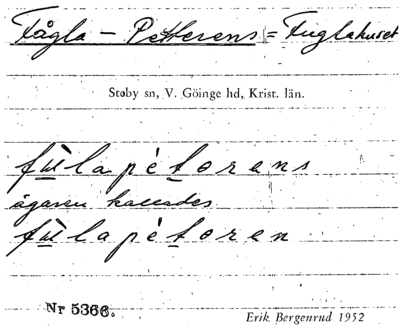 Fågla - Petterens = Fuglahuset
Stoby sn, V. Göinge hd, Krist. län.
fu̲lapèt̲ərens
ägaren kallades
fu̲lapèt̲əren
Nr 5366.
Erik Bergenrud 1952